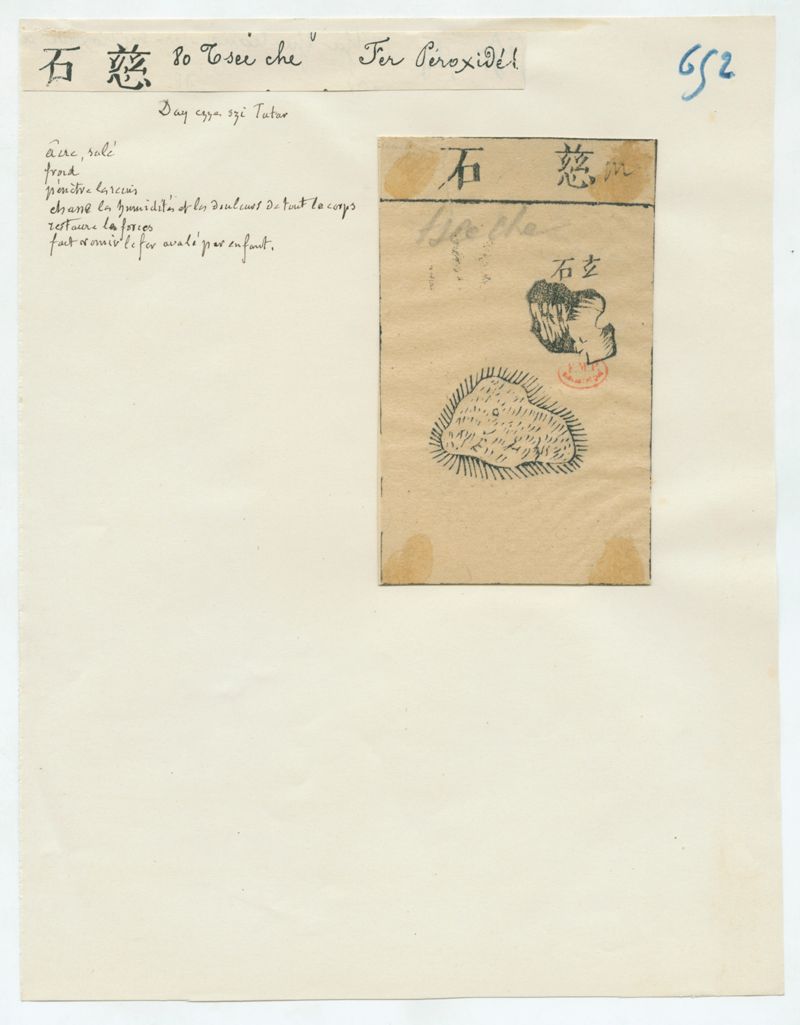 石 慈 80 Tsee che Fer Péroxidé
652
Day Tatar
âcre, salé
froid
pénètre les reins
chasse les humidités et les douleurs de tout le corps
restaure les forces
fait vomir le fer avalé par enfant.
石 慈
tsee che
石 玄